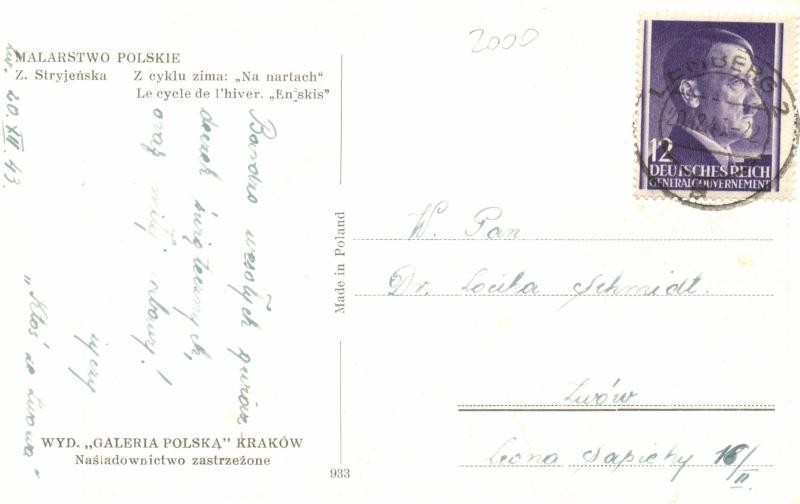 2000
MALARSTWO POLSKIE
Z. Stryjeńska Z cyklu zima: „Na nartach"
Le cycle de l'hiver. „En skis"
Lw. 20.XII.43.
Bardzo wesołych
świątecznych,
oraz miłej zabawy!
życzy
„Ktoś ze Lwowa"
WYD. „GALERIA POLSKĄ" KRAKÓW
Naśladownictwo zastrzeżone
Made in Poland
933
LEMBERG 2
12
DEUTSCHES REICH
GENERALGOUVERNEMENT
W. Pan
Dr. Schmidt.
Lwów
Leona Sapiehy 16/II